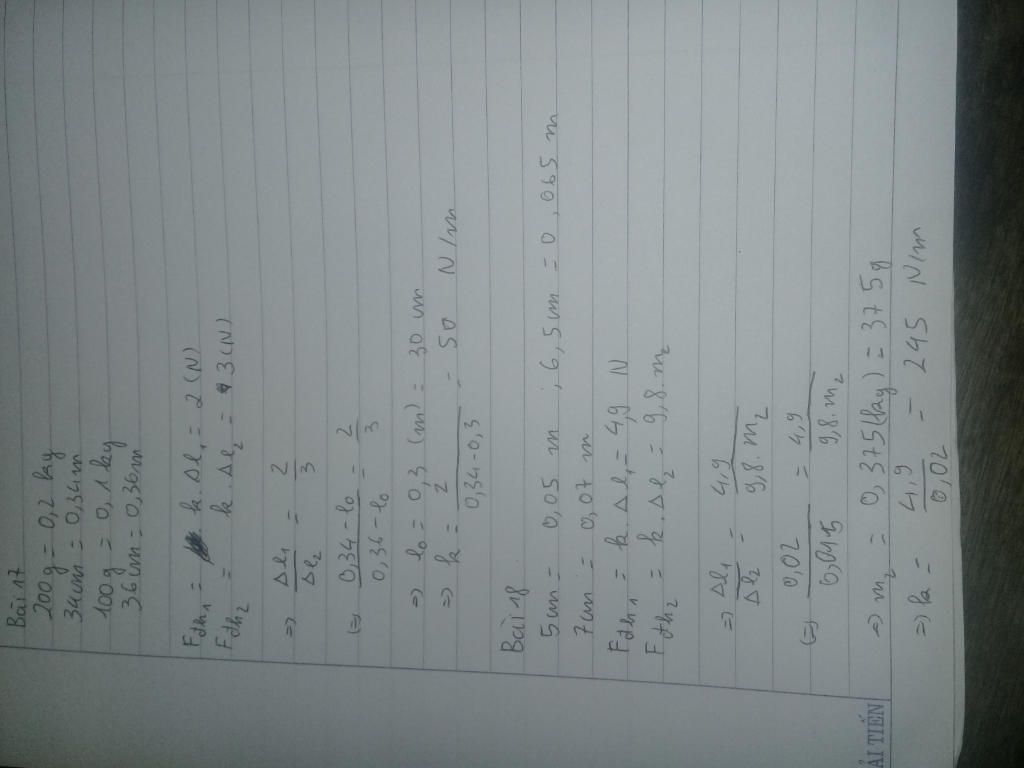 Bài 17
200g = 0,2 kg
34cm = 0,34m
100g = 0,1 kg
36cm = 0,36m
Fđh1 = k.Δl1 = 2 (N)
Fđh2 = k.Δl2 = 3 (N)
=> Δl1/Δl2 = 2/3
(=) (0,34-l0)/(0,36-l0) = 2/3
=> l0 = 0,3 (m) = 30 cm
=> k = 2/(0,34-0,3) = 50 N/m
Bài 18
5cm = 0,05 m ; 6,5cm = 0,065 m
7cm = 0,07 m
Fđh1 = k.Δl1 = 4,9 N
Fđh2 = k.Δl2 = 9,8.m2
=> Δl1/Δl2 = 4,9/9,8.m2
(=) 0,02/0,015 = 4,9/9,8.m2
=> m2 = 0,375(kg) = 375g
=> k = 4,9/0,02 = 245 N/m
ẢI TIẾN